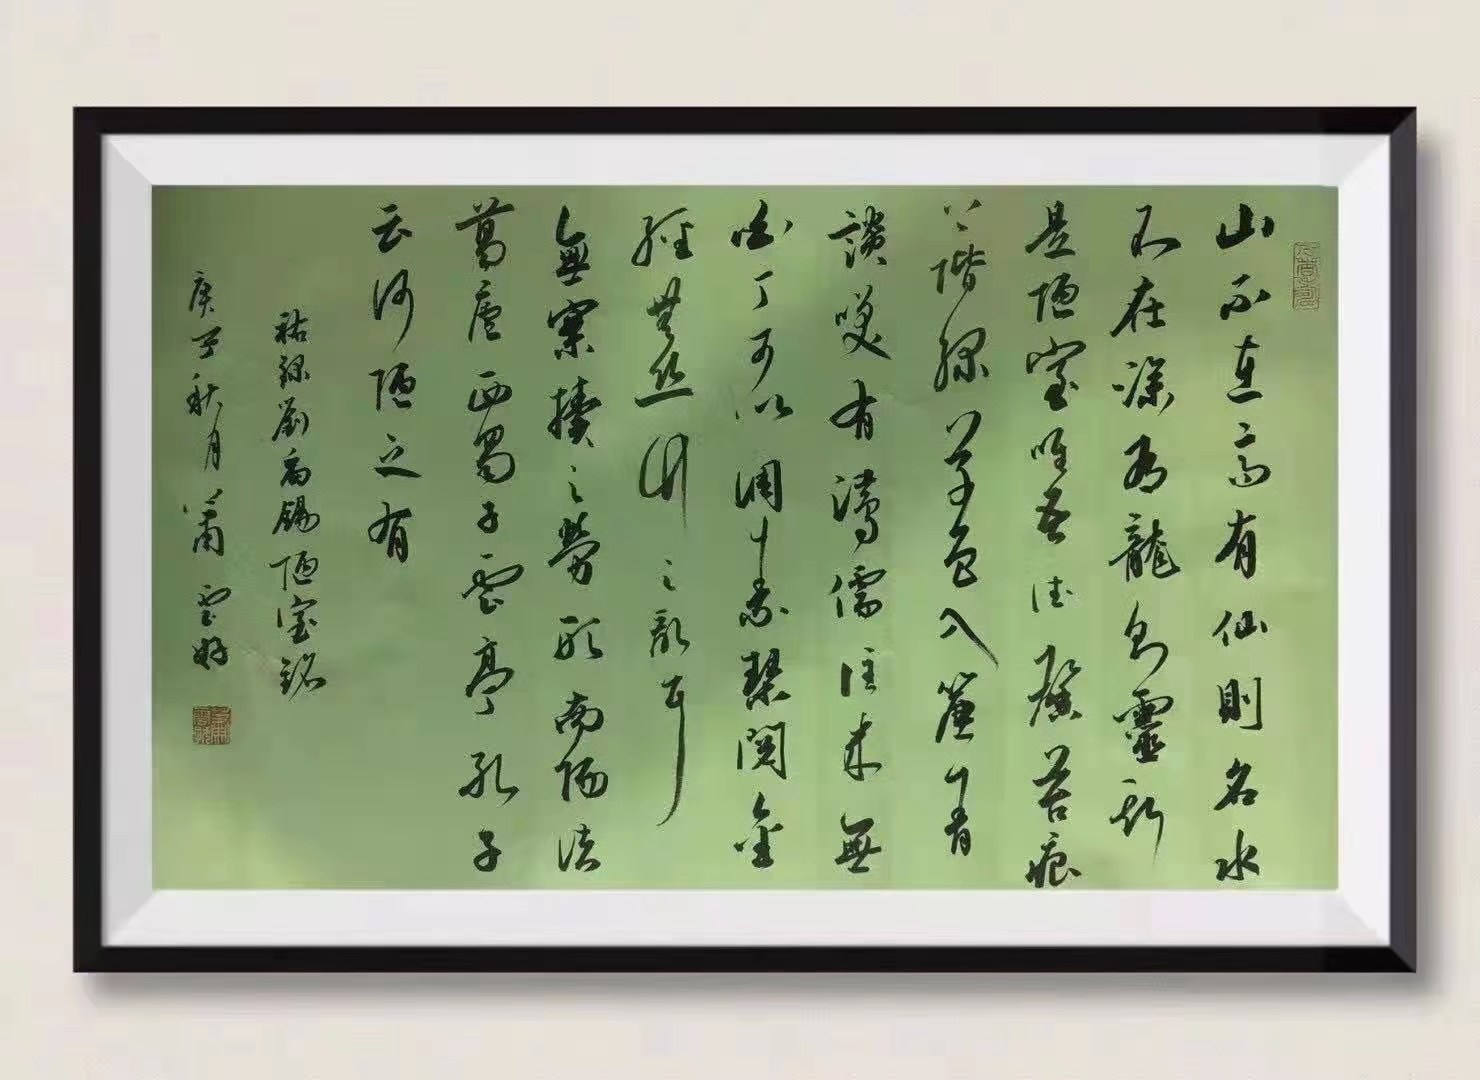 山不在高有仙則名水
不在深有龍則靈斯
是陋室唯吾德馨苔痕
上階緑草色入簾青
談笑有鴻儒往來無
白丁可以調素琴閱金
經無絲竹之亂耳
無案牘之勞形南陽諸
葛廬西蜀子雲亭孔子
云何陋之有
録劉禹錫陋室銘
庚子秋月蕭